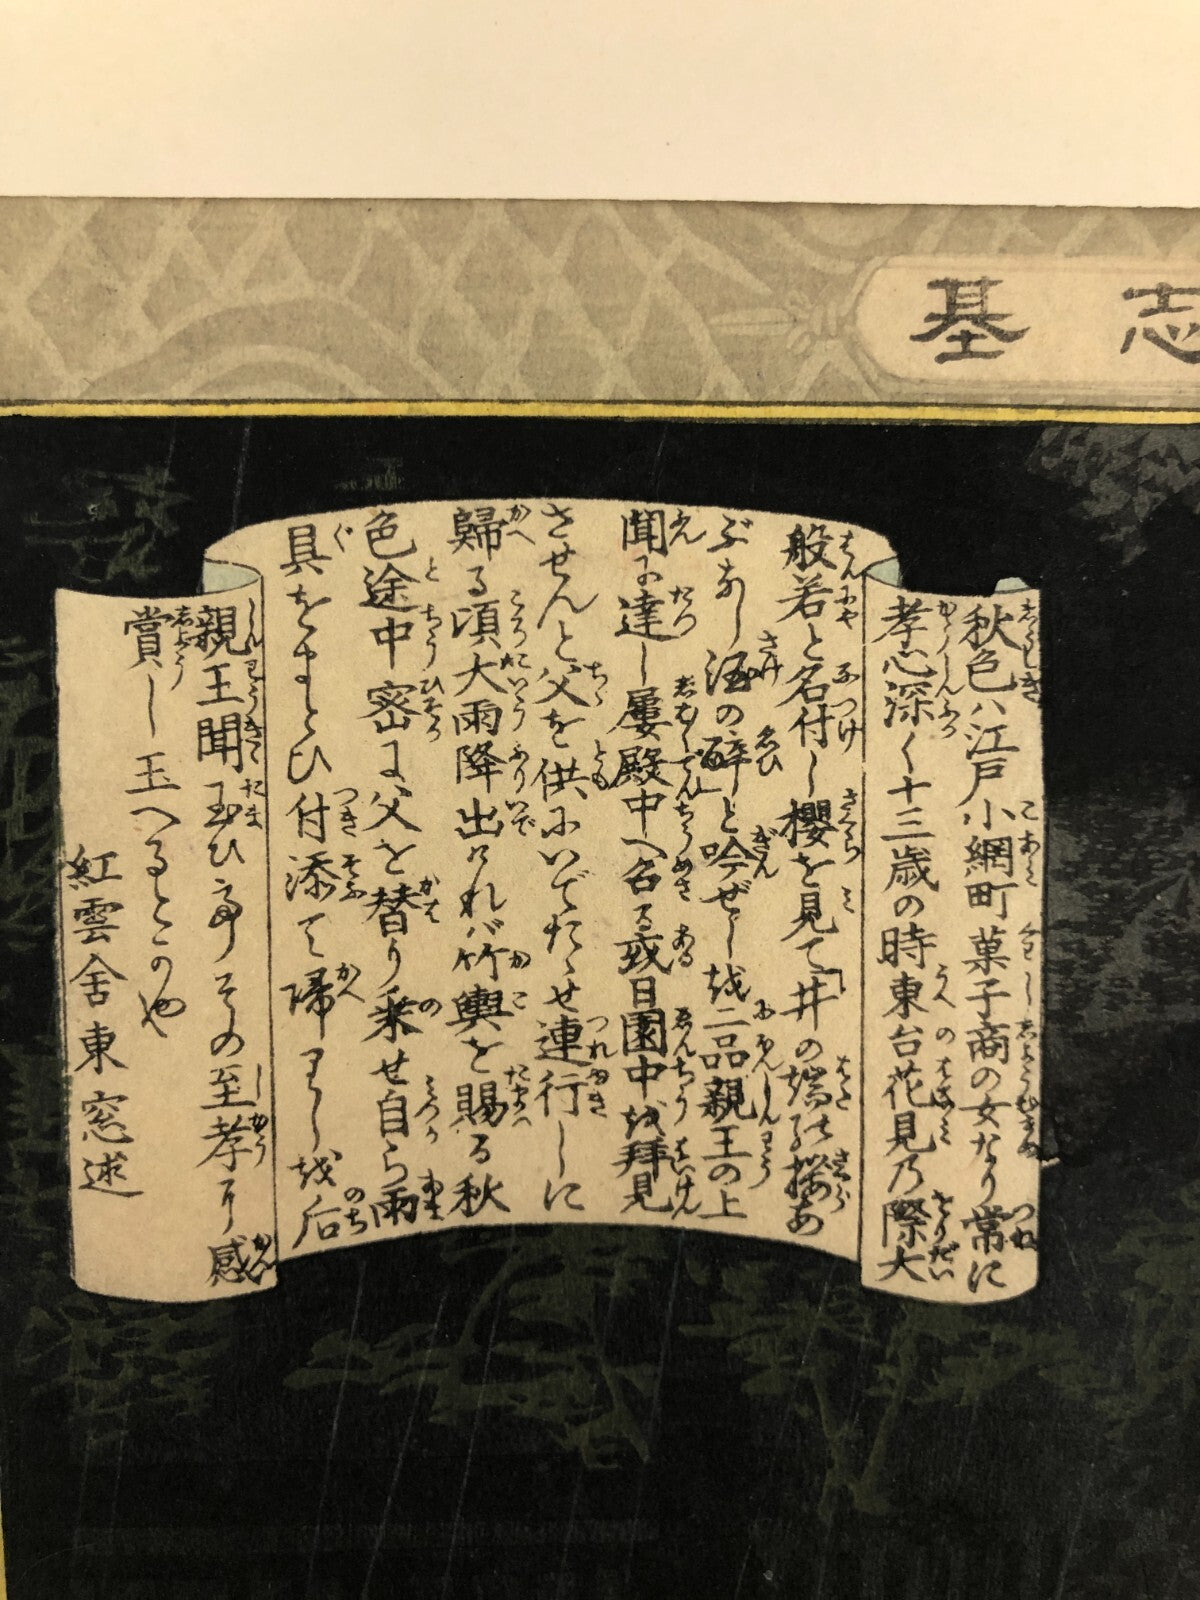 志基
秋色ハ江戸小網町菓子商の女なり常に
孝心深く十三歳の時東台花見乃際大
般若と名付し櫻を見て「井の端の桜あ
ぶなし酒の醉と吟ぜし越二品親王の上
聞に達し屡殿中へ召る或日園中越拝見
させんと父を供ふいでたゝせ連行しに
歸る頃大雨降出けれバ竹輿を賜る秋
色途中密に父を替り乗せ自ら雨
具をまとひ付添て帰りし越后
親王聞玉ひ予その至孝を感
賞し玉へるとかや
紅雲舍東窓述